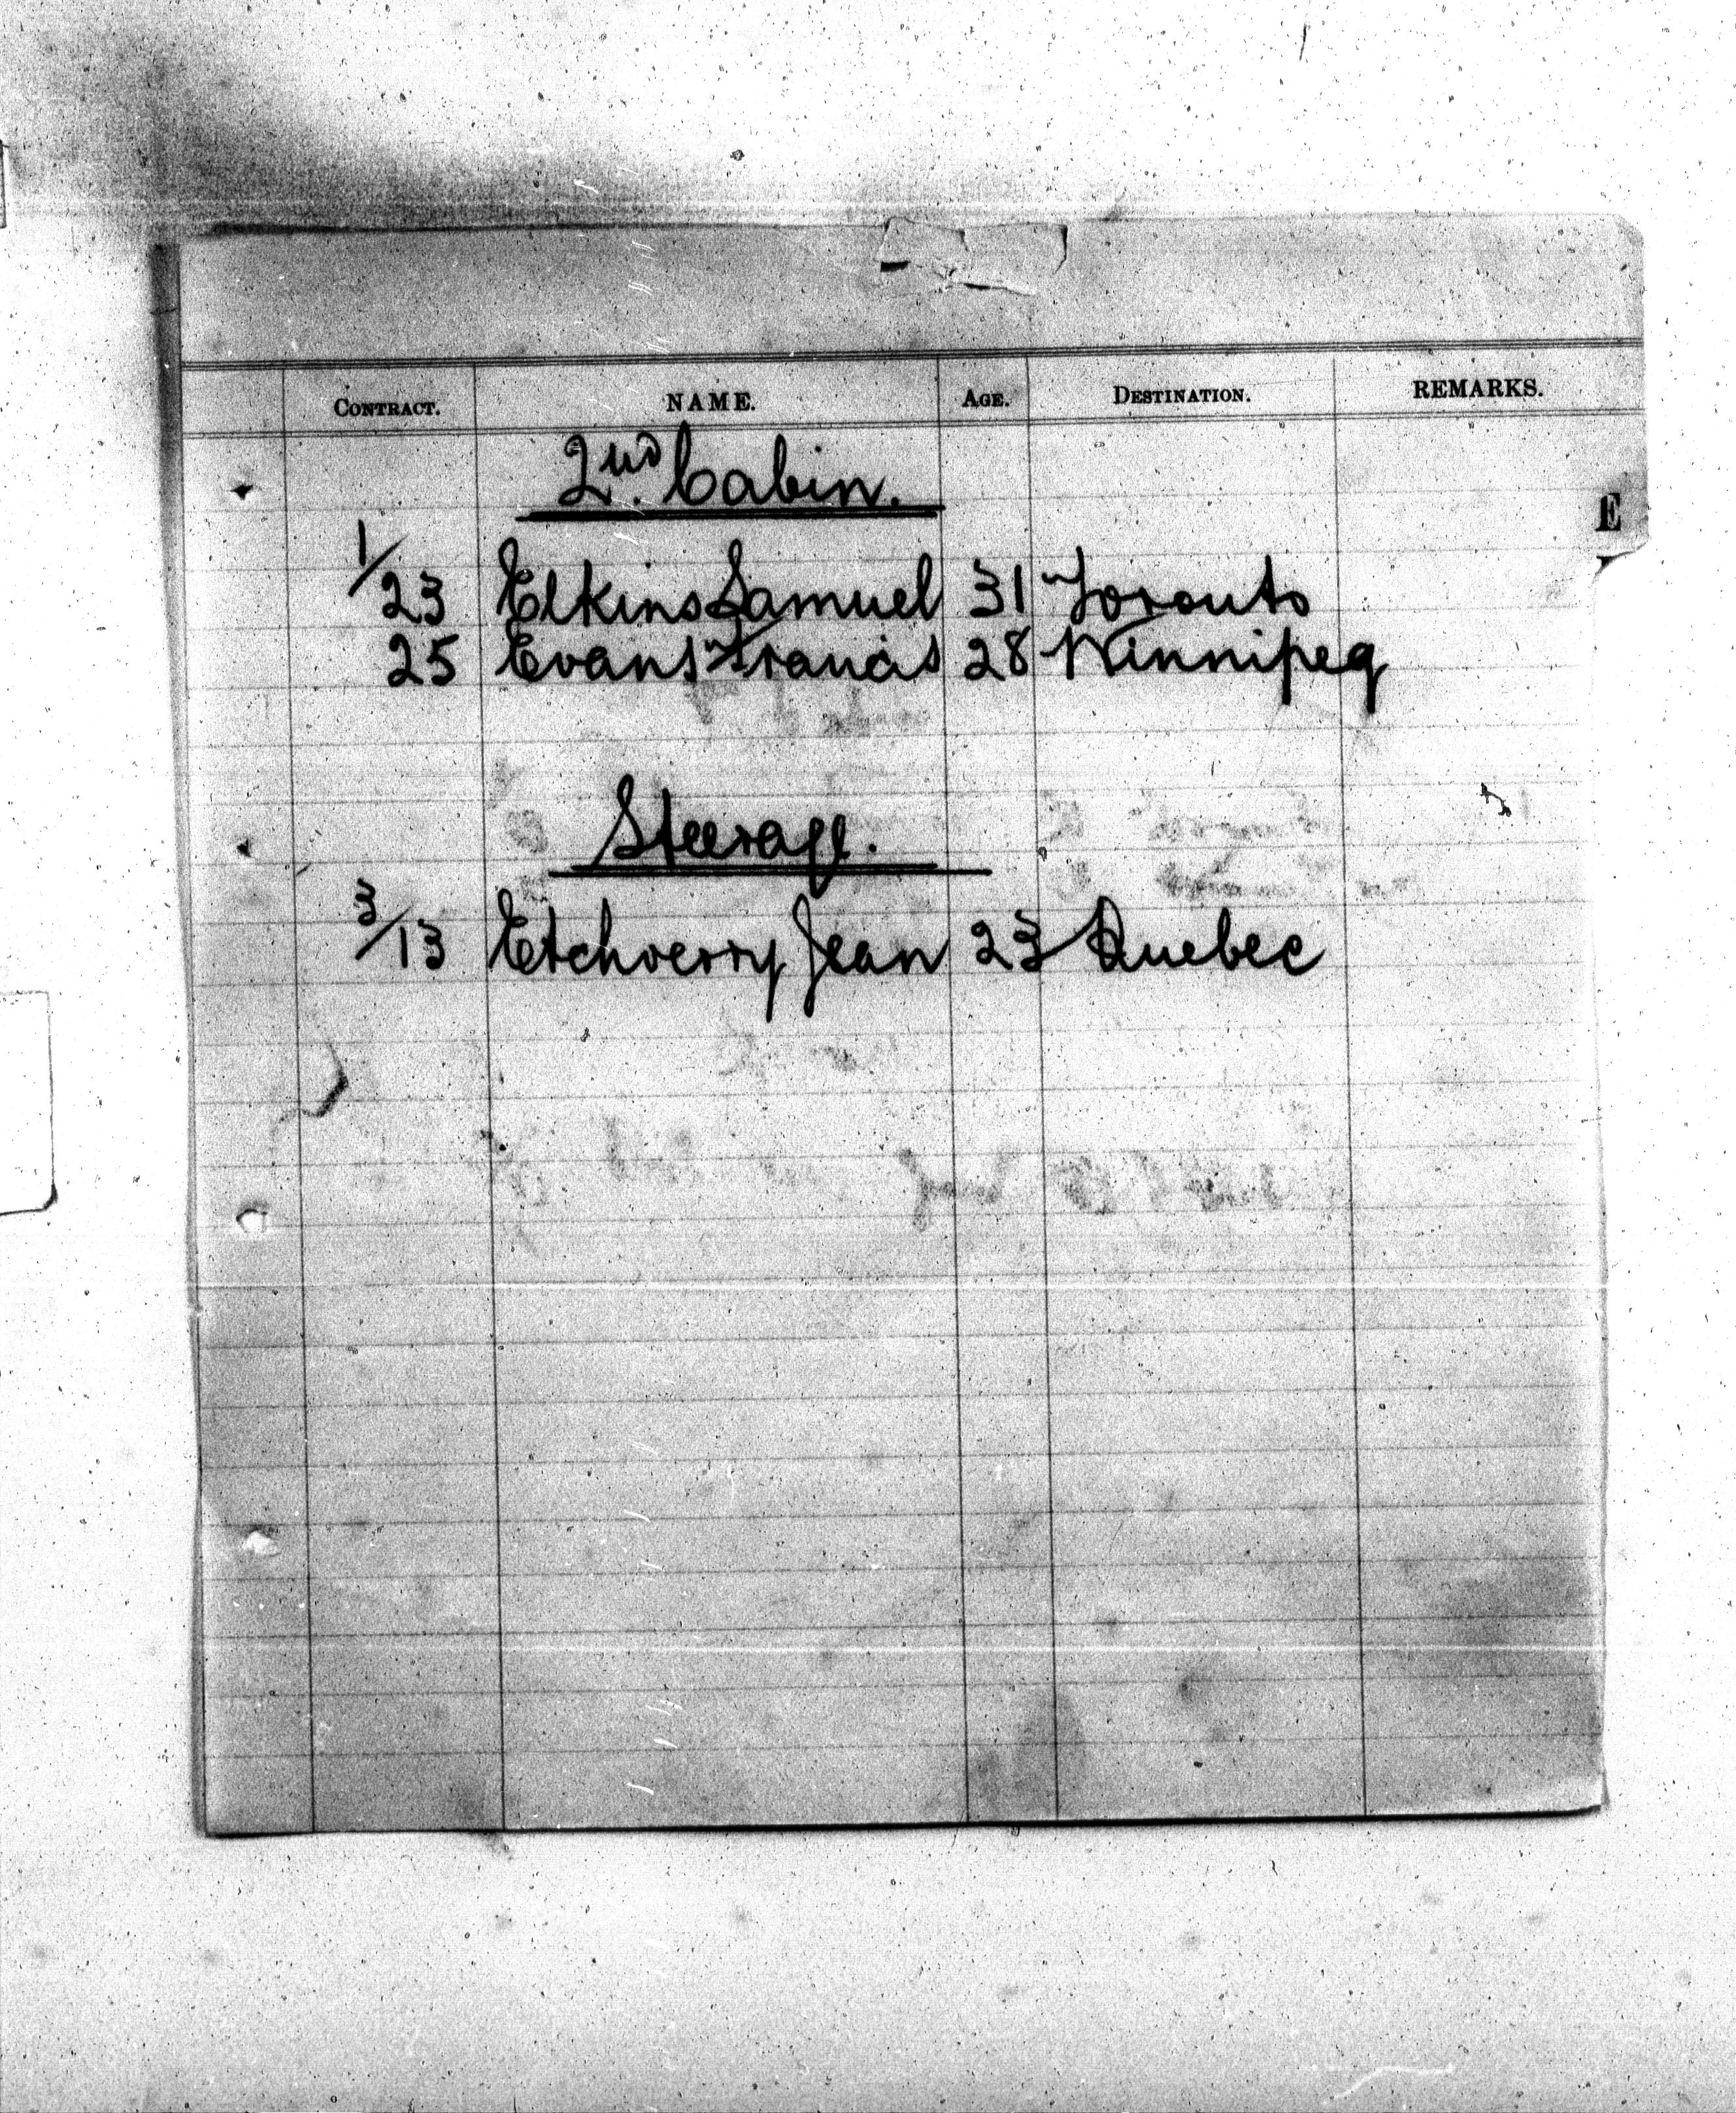 CONTRACT. NAME. AGE. DESTINATION. REMARKS.
2nd. Cabin.
E
1/23 Elkins Samuel 31 Toronto
25 Evans Francis 28 Winnipeg
Steerage.
3/13 Etchverry Jean 23 Quebec